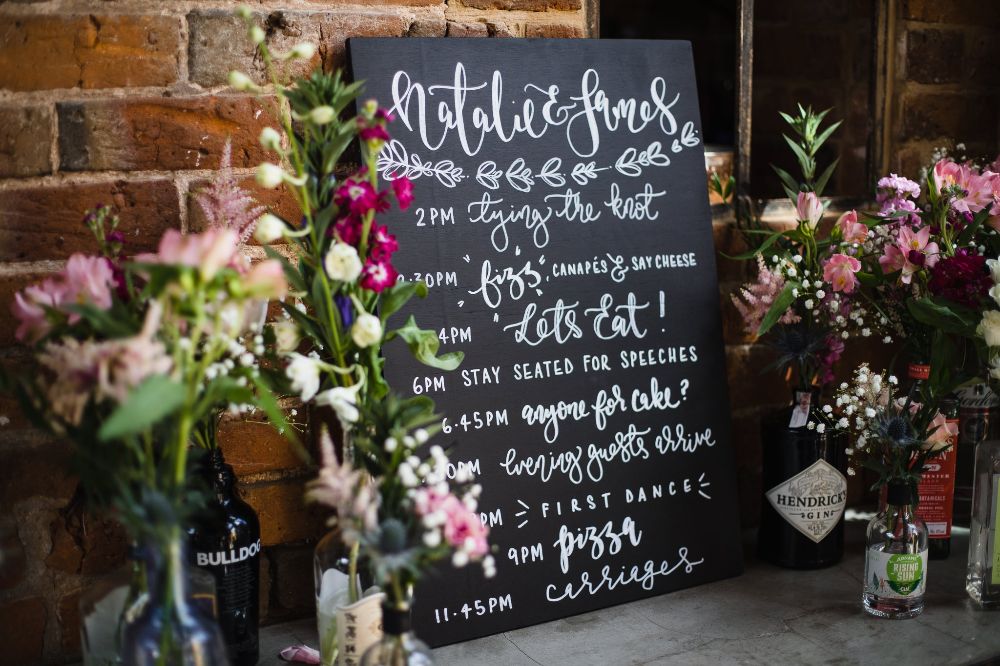 Natalie & James
2PM tying the knot
:30PM "fizz", CANAPÉS & SAY CHEESE
4PM "Lets Eat!
6PM STAY SEATED FOR SPEECHES
6.45PM anyone for cake?
PM Evening guests arrive
PM FIRST DANCE
9PM pizza
11.45PM carriages
BULLDOG
HENDRICK'S
GIN
RISING
SUN